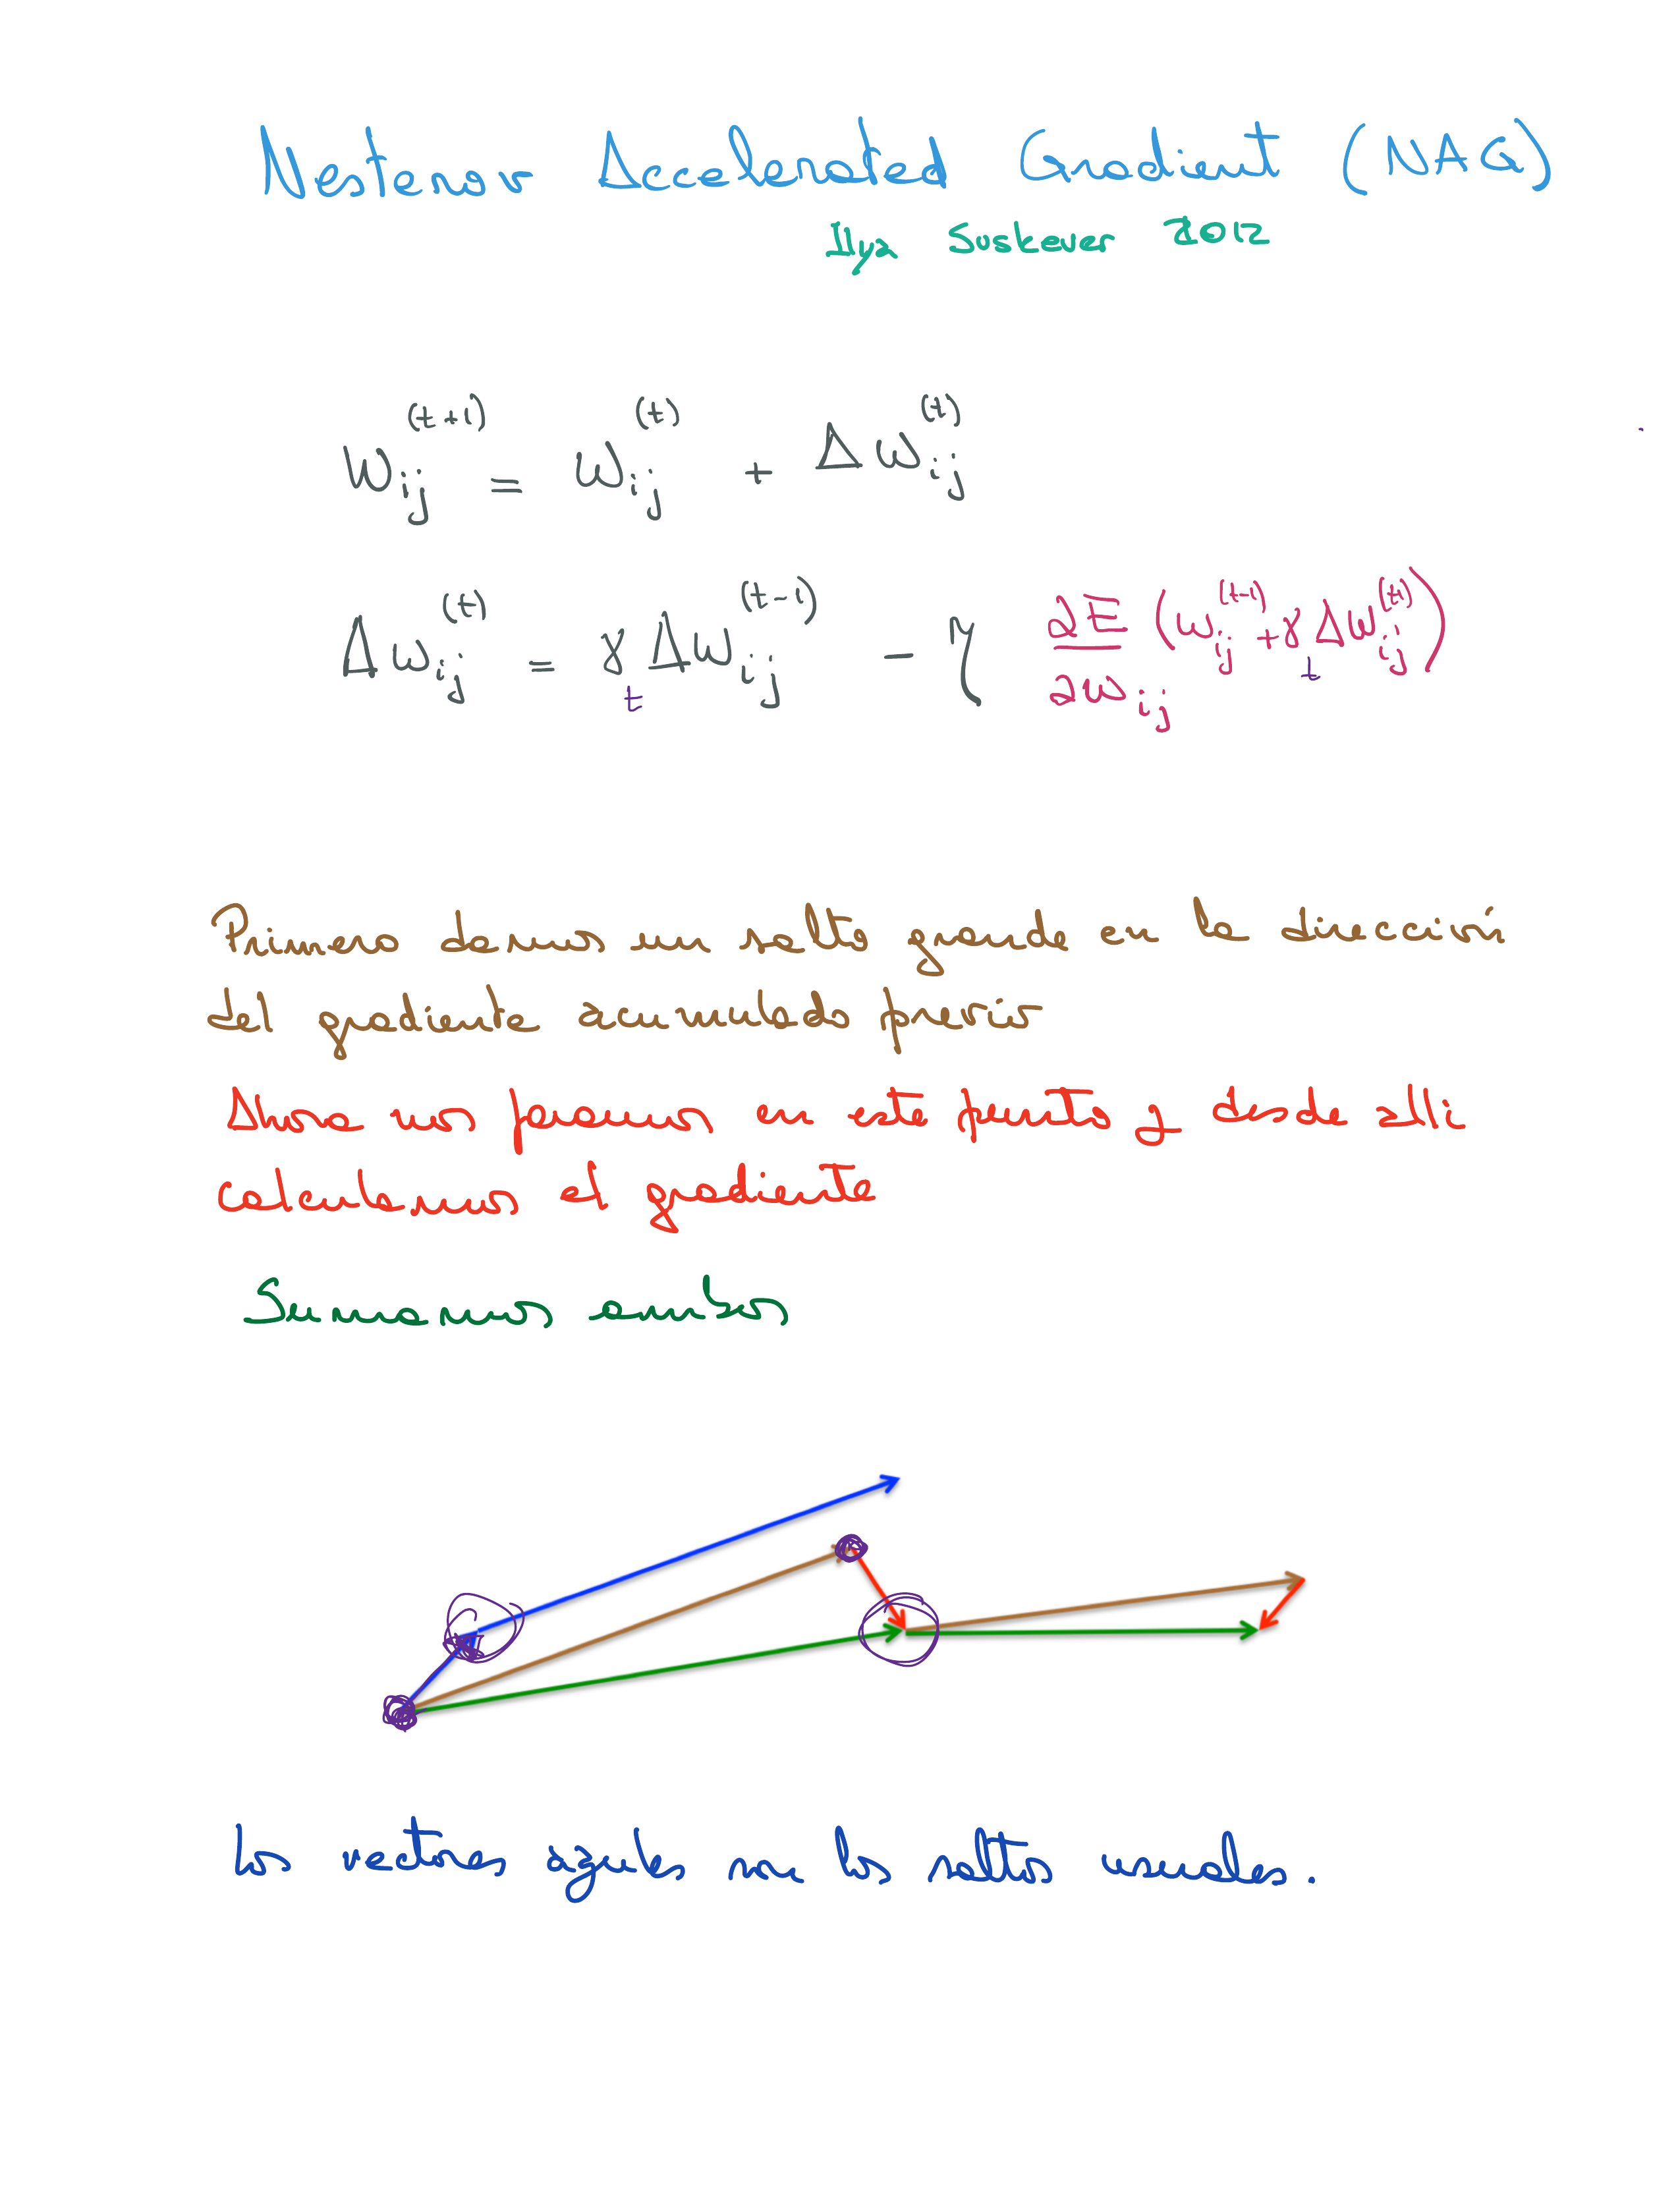 Nesterov Accelerated Gradient (NAG)
Ilya Suskever 2012
w_{ij}^{(t+1)} = w_{ij}^{(t)} + Δw_{ij}^{(t)}
Δw_{ij}^{(t)} = γ_t Δw_{ij}^{(t-1)} - η ∂E/∂w_{ij} (w_{ij}^{(t-1)} + γ_t Δw_{ij}^{(t-1)})
Primero damos un salto grande en la dirección
del gradiente acumulado previo
Ahora nos paramos en este punto y desde alli
calculamos el gradiente
Sumamos ambos
Los vectores azules son los saltos usuales.